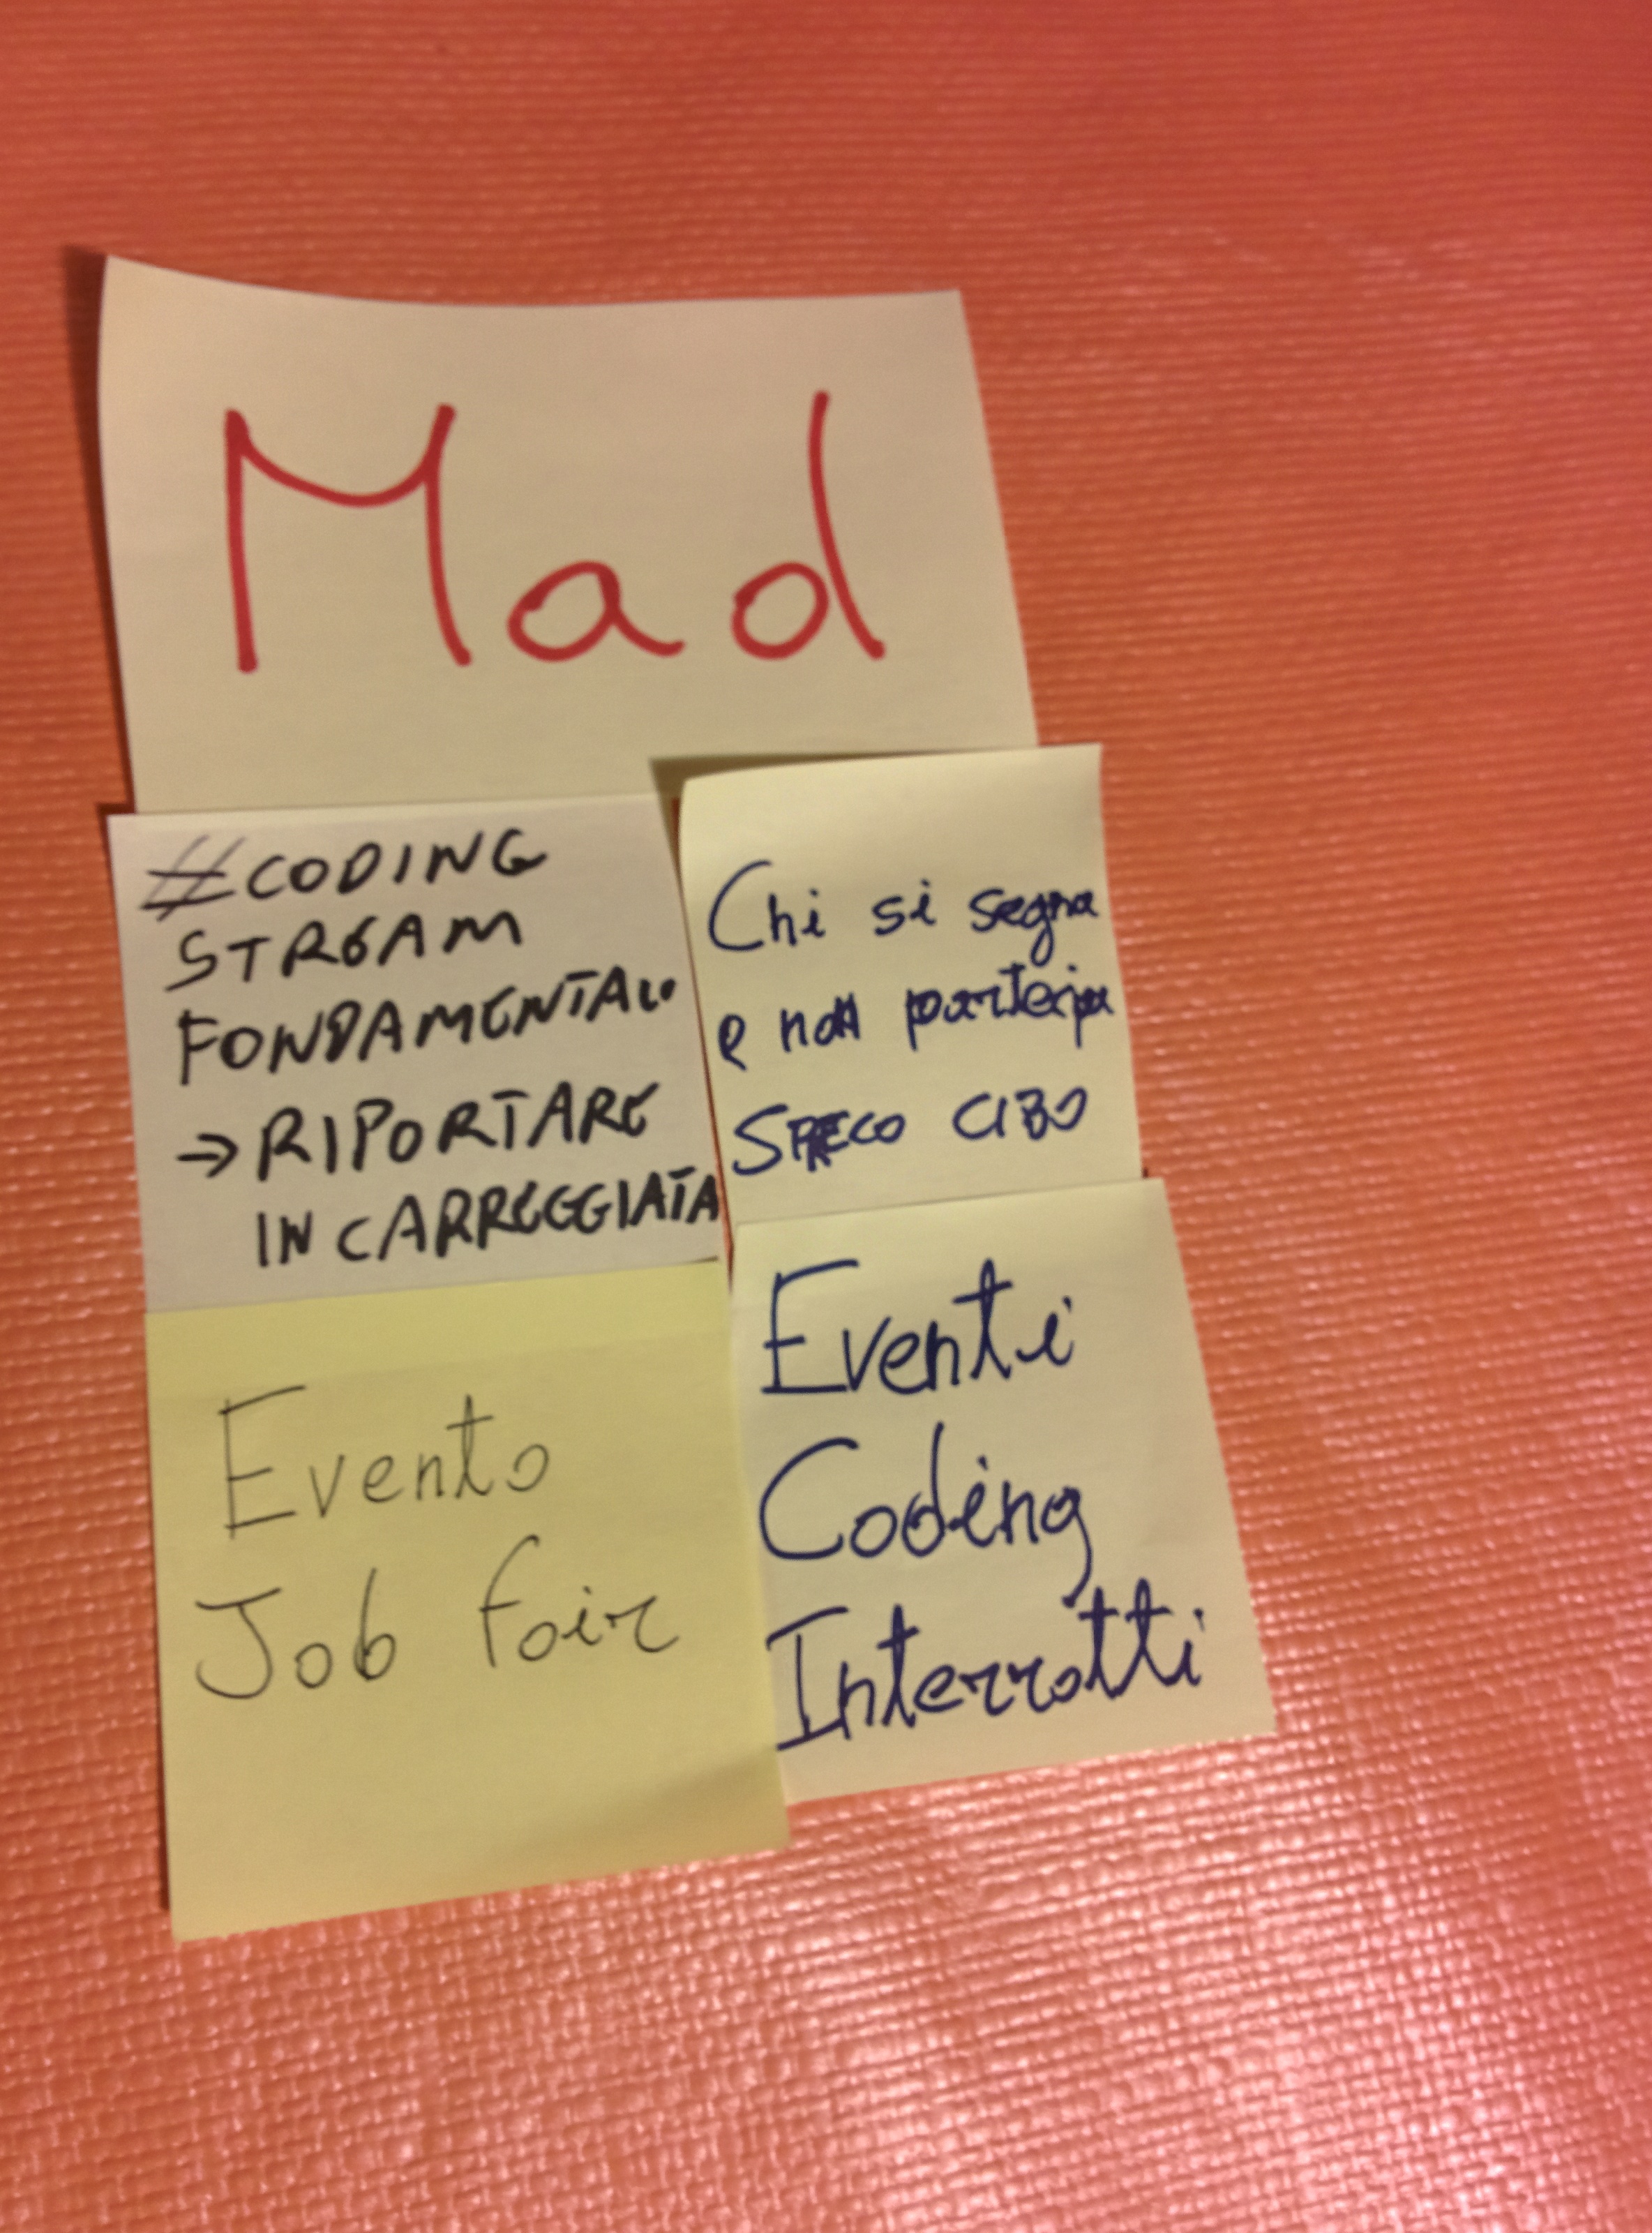 Mad
#CODING
STREAM
FONDAMENTALE
→ RIPORTARE
IN CARREGGIATA
Chi si segna
e non partecipa
SPRECO CIBO
Evento
Job fair
Eventi
Coding
Interrotti